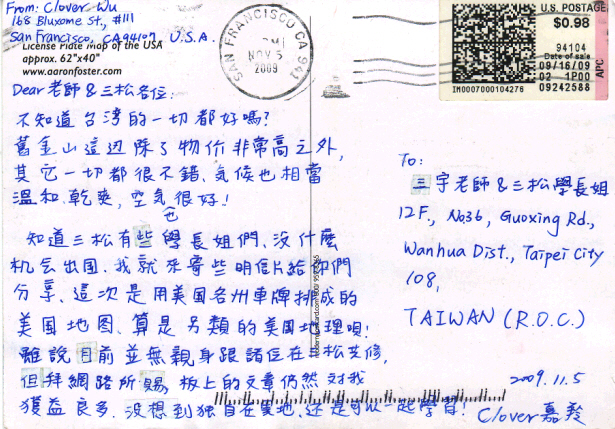 From: Clover Wu
168 Bluxome St., #111
San Francisco, CA94107, U.S.A.
License Plate Map of the USA
approx. 62"x40"
www.aaronfoster.com
SAN FRANCISCO CA 941
PM
NOV 5
2009
U.S. POSTAGE
$0.98
94104
Date of sale
09/16/09
02 1P00
09242588
IM0007000104276
APC
Dear 老師 & 三松各位:
不知道台湾的一切都好嗎?
舊金山這边除了物价非常高之外,
其它一切都很不錯、氣候也相當
溫和、乾爽,空氣也很好!
知道三松有些學長姐們、没什麼
机会出国、我就來寄些明信片給你們
分享、這次是用美国各州車牌排成的
美国地图、算是另類的美国地理唄!
雖說目前並無親身跟諸位在三松共修,
但拜網路所賜,板上的文章仍然对我
獲益良多、没想到独自在異地、还是可以一起學習!
Clover嘉
2009.11.5
To:
三宇老師&三松學長姐
12F., No.36, Guoxing Rd.,
Wanhua Dist., Taipei City
108,
TAIWAN (R.O.C.)